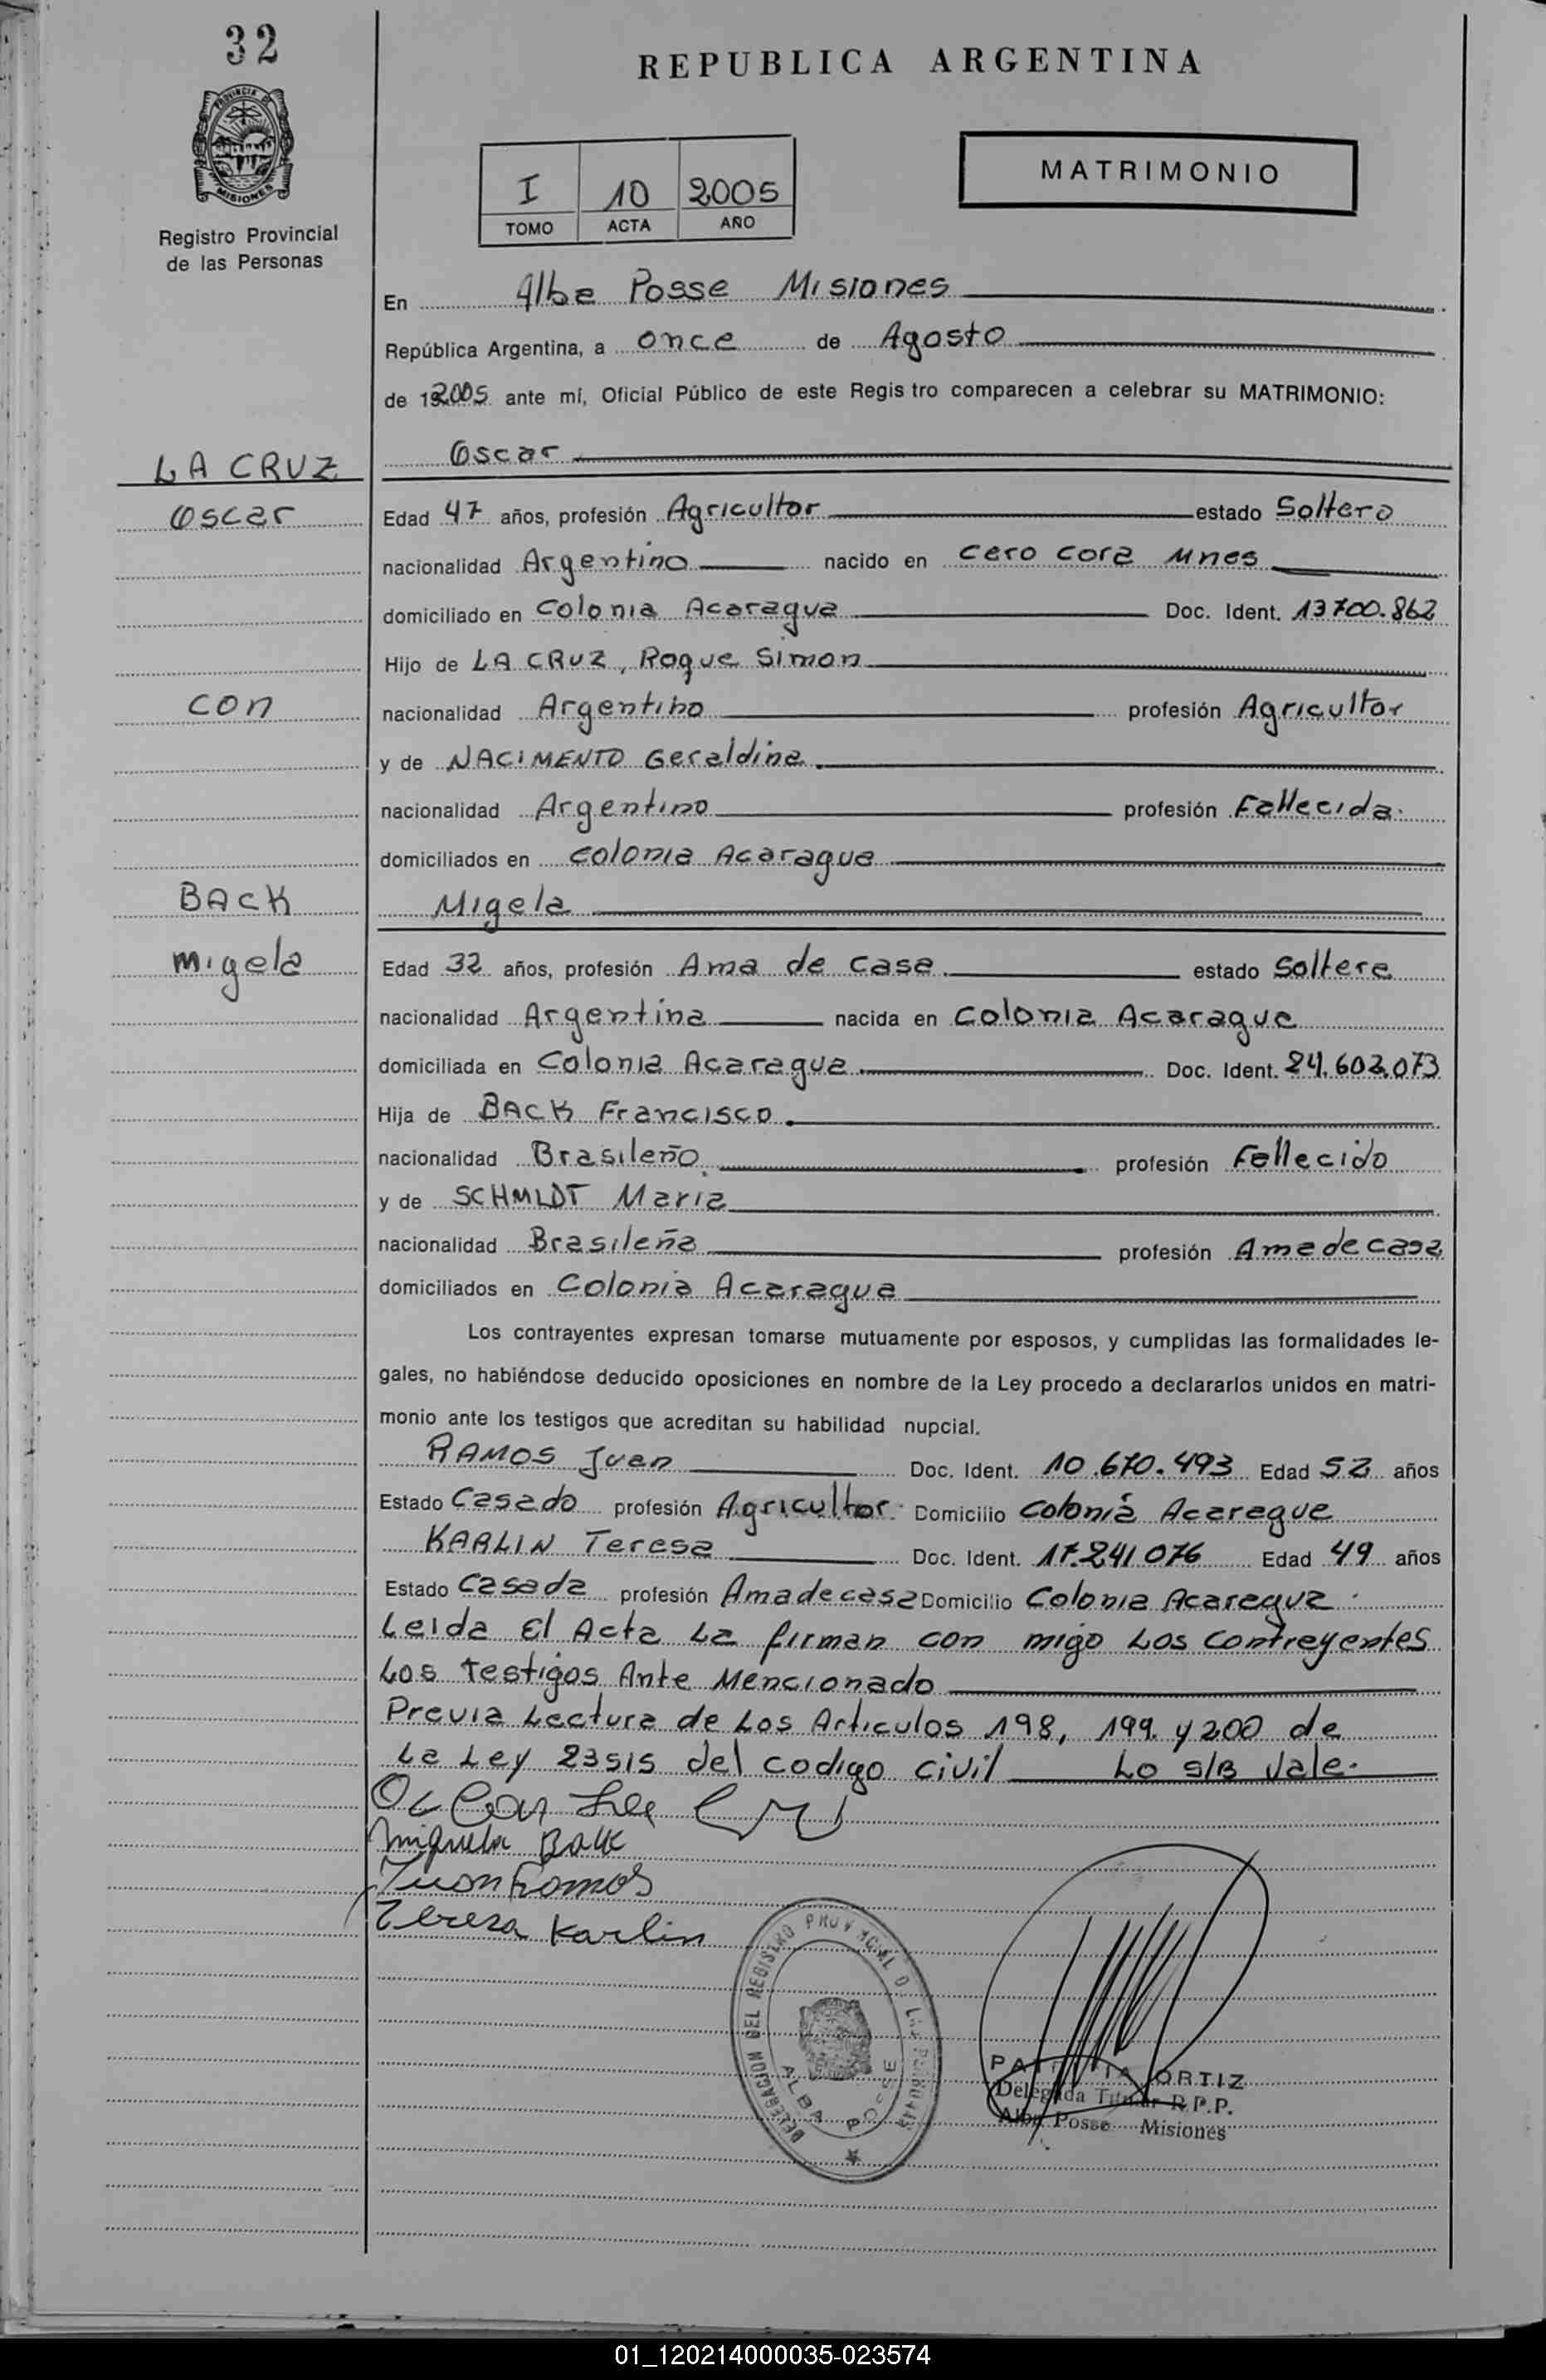 32
REPUBLICA ARGENTINA
PROVINCIA DE
MISIONES
Registro Provincial
de las Personas
I 10 2005
TOMO ACTA AÑO
MATRIMONIO
En Alba Posse Misiones
República Argentina, a once de Agosto
de 192005 ante mí, Oficial Público de este Regis tro comparecen a celebrar su MATRIMONIO:
LA CRUZ
Oscar
Oscar
Edad 47 años, profesión Agricultor estado Soltero
nacionalidad Argentino nacido en Cero Cora Mnes
domiciliado en Colonia Acaragua Doc. Ident. 13700.862
Hijo de LA CRUZ, Roque Simon
con
nacionalidad Argentino profesión Agricultor
y de NACIMENTO Geraldina
nacionalidad Argentino profesión Fallecida.
domiciliados en Colonia Acaragua
BACK
Migela
Migela
Edad 32 años, profesión Ama de casa estado Soltera
nacionalidad Argentina nacida en Colonia Acaragua
domiciliada en Colonia Acaragua Doc. Ident. 24.602.073
Hija de BACK Francisco
nacionalidad Brasileño profesión Fallecido
y de SCHMIDT Maria
nacionalidad Brasileña profesión Ama de casa
domiciliados en Colonia Acaragua
Los contrayentes expresan tomarse mutuamente por esposos, y cumplidas las formalidades le-
gales, no habiéndose deducido oposiciones en nombre de la Ley procedo a declararlos unidos en matri-
monio ante los testigos que acreditan su habilidad nupcial.
RAMOS Juan Doc. Ident. 10.670.493 Edad 52 años
Estado Casado profesión Agricultor Domicilio Colonia Acaragua
KARLIN Teresa Doc. Ident. 17.241076 Edad 49 años
Estado Casada profesión Ama de casa Domicilio Colonia Acaragua
Leida El Acta La firman con migo Los Contreyentes
Los testigos Ante Mencionado
Previa Lectura de Los Articulos 198, 199 y 200 de
La Ley 23515 del codigo civil Lo S/B Vale.
Miguela Back
Juan Ramos
Teresa Karlin
DELEGACION DEL REGISTRO PROVINCIAL DE LAS PERSONAS
ALBA POSSE
PATRICIA ORTIZ
Delegada Titular R.P.P.
Alba Posse Misiones
01_120214000035-023574